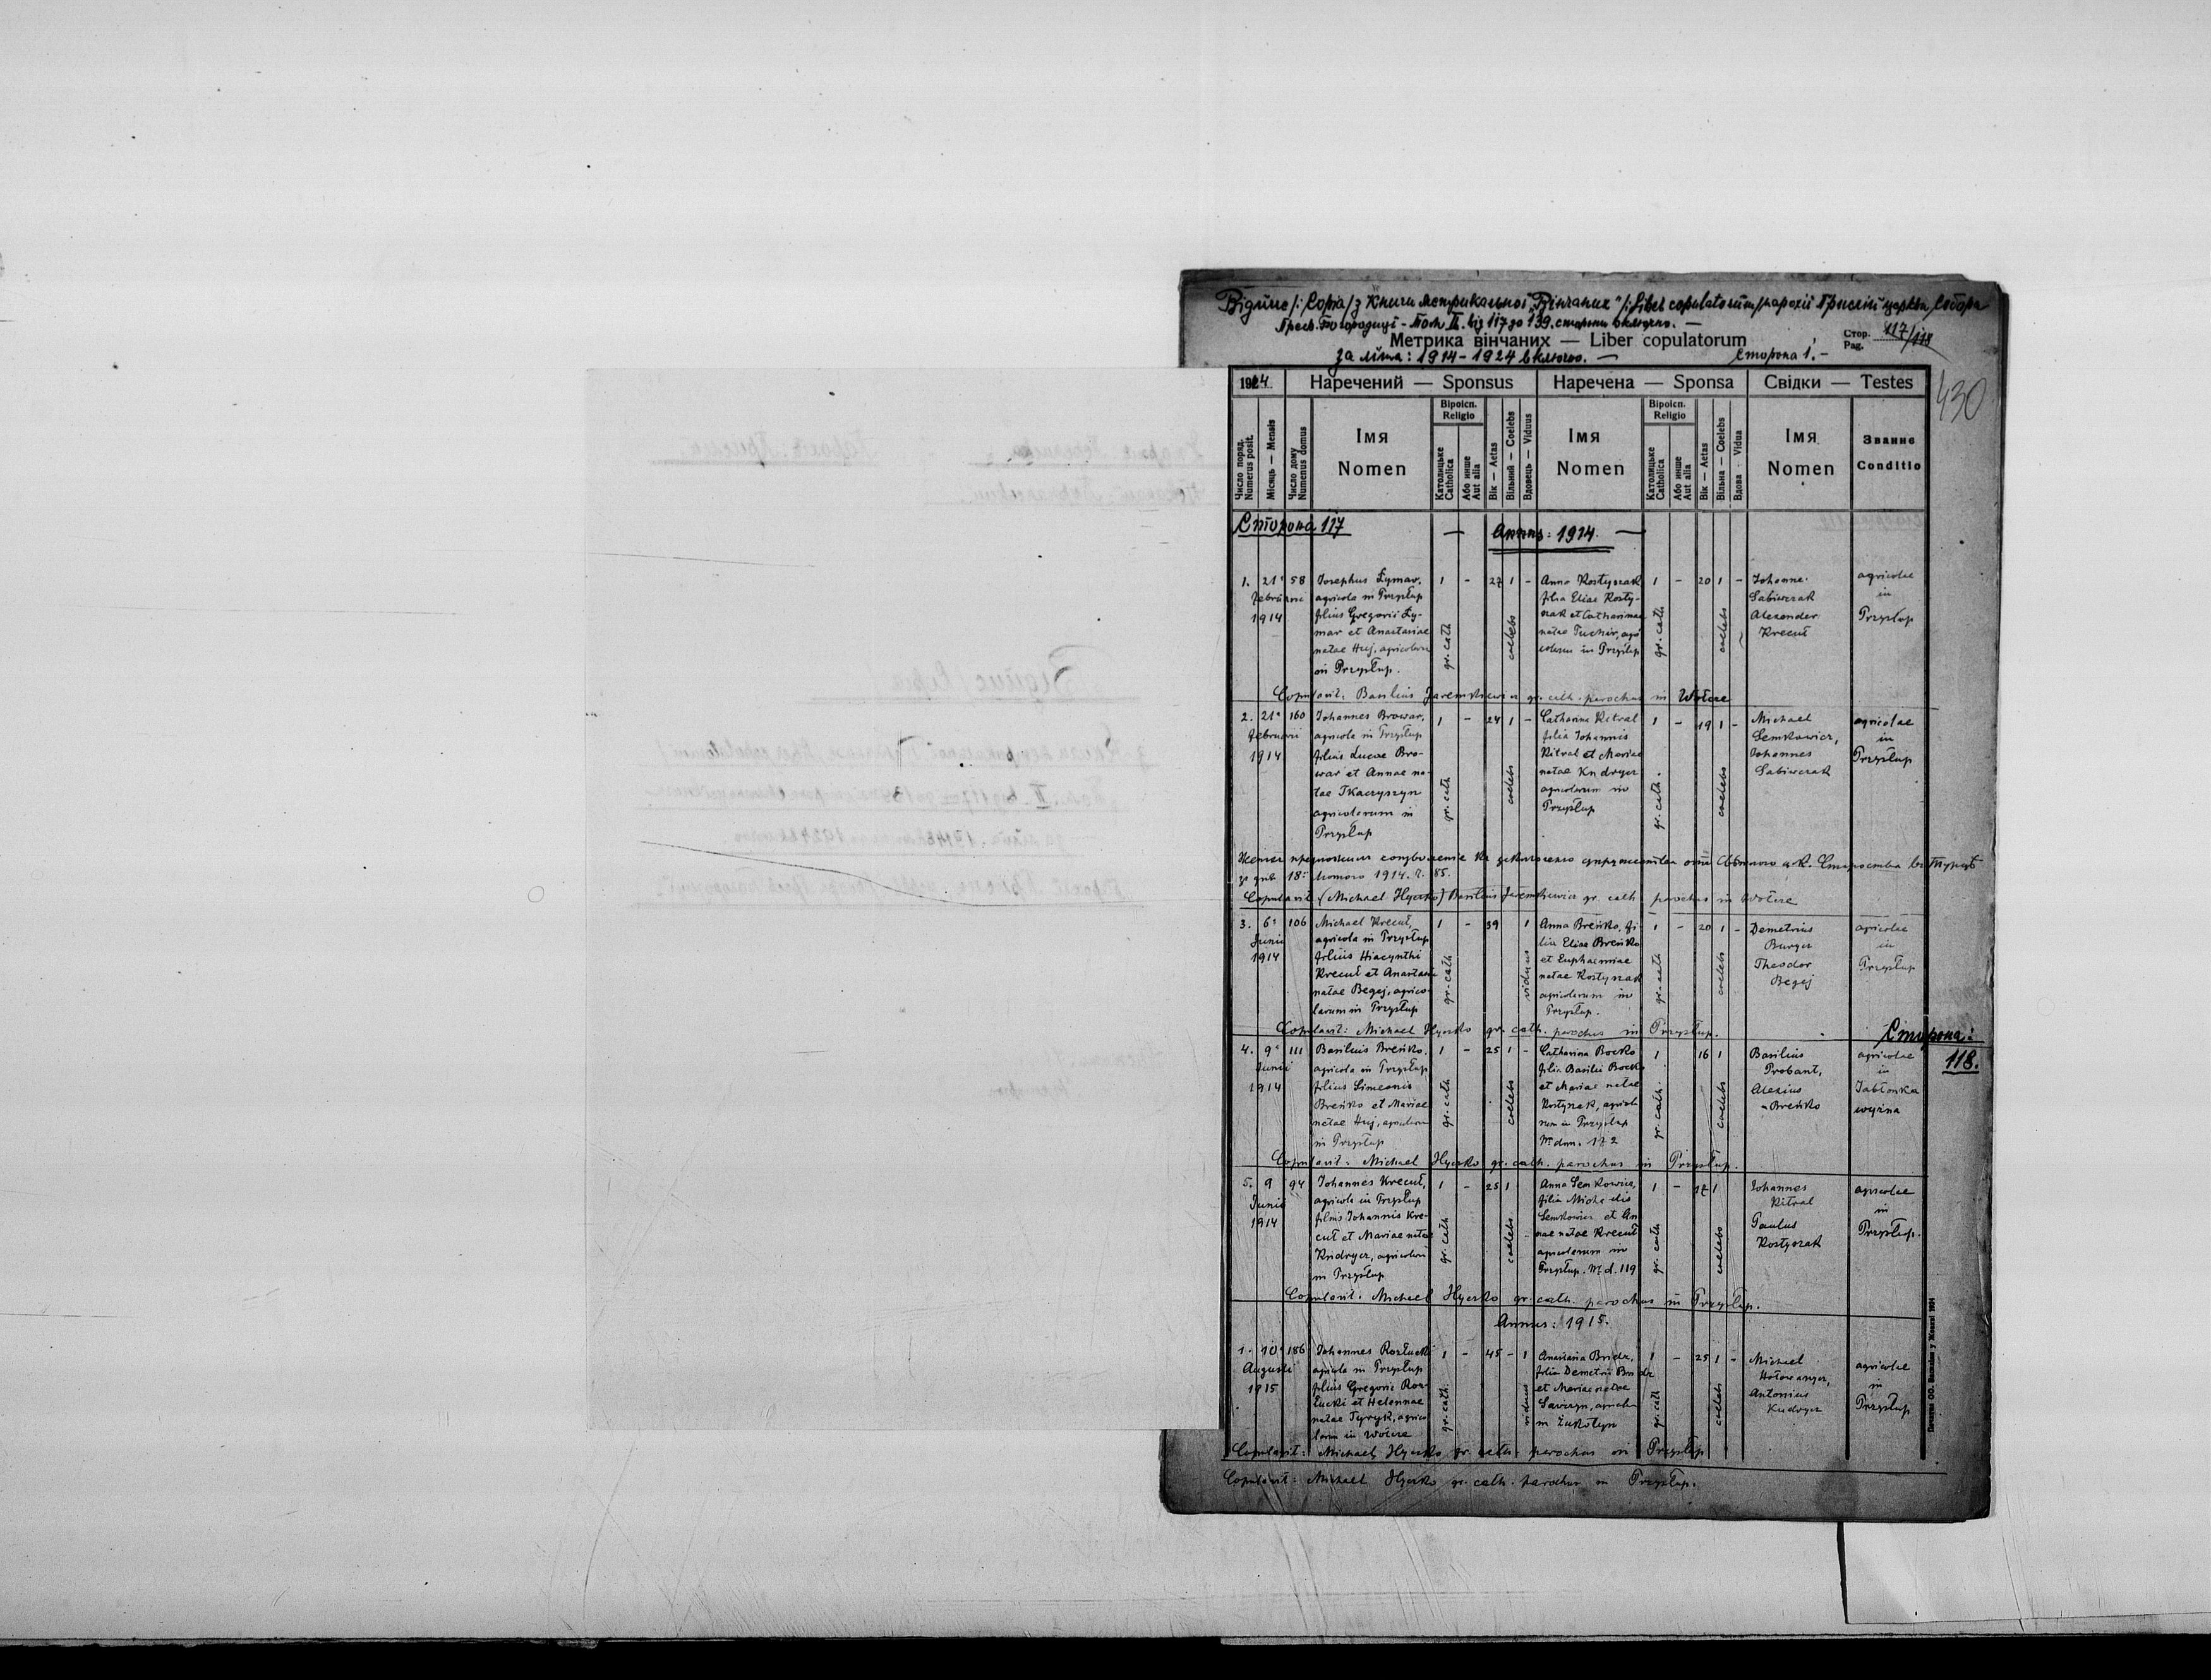 Відпис /: Copia/ з Книги метрикальної "Вінчаних" /: Liber copulatorum/ парохії Присліп церкви Собора
Пресв. Богородиці - Том II. від 117 до 139. сторони включно. —
Метрика вінчаних — Liber copulatorum
Стор. Pag. 117/118
за літа: 1914 - 1924 включно. —
Сторона 1. -
430
1914
Наречений — Sponsus
Наречена — Sponsa
Свідки — Testes
Число поряд. Numerus posit.
Місяць — Mensis
Число дому Numerus domus
Імя Nomen
Віроісп. Religio
Католицьке Catholica
Або инше Aut alia
Вік — Aetas
Вільний — Coelebs
Вдовець — Viduus
Імя Nomen
Віроісп. Religio
Католицьке Catholica
Або инше Aut alia
Вік — Aetas
Вільна — Coelebs
Вдова — Vidua
Імя Nomen
Званне Conditio
Сторона 117
— Annus: 1914. —
1. 21 Februarii 1914 58
Josephus Łymar,
agricola in Przysłup
filius Gregorii Ły-
mar et Anastasiae
natae Huj, agricolarum
in Przysłup.
1 - 27 1 -
gr. cath coelebs
Anna Kostyszak
filia Eliae Kosty-
szak et Catharinae
natae Tuchir, agri
colarum in Przysłup
1 - 20 1 -
gr. cath coelebs
Johannes
Sabiwczak
Alexander
Krecuł
agricolae
in
Przysłup
Copulavit: Basilius Jaremkiewicz gr. cath. parochus in Wołcze
2. 21 Februarii 1914 160
Johannes Browar,
agricola in Przysłup
filius Lucae Bro-
war et Annae na-
tae Tkaczyszyn
agricolarum in
Przysłup
1 - 24 1 -
gr. cath coelebs
Catharina Kitral
filia Johannis
Kitral et Mariae
natae Kudryez
agricolarum in
Przysłup
1 - 19 1 -
gr. cath. coelebs
Michael
Semkowicz,
Johannes
Sabiwczak
agricolae
in
Przysłup
з дня 18 лютого 1914. Ч. 85.
Copulavit: (Michael Hyczko) Basilius Jaremkiewicz gr. cath parochus in Wołcze
3. 6 Junii 1914 106
Michael Krecuł,
agricola in Przysłup
filius Hiacynthi
Krecuł et Anastasiae
natae Begej, agrico-
larum in Przysłup
1 - 39 1
gr. cath viduus
Anna Breńko, fi-
lia Eliae Breńko
et Euphemiae
natae Kostyszak
agricolarum in
Przysłup.
1 - 20 1 -
gr. cath coelebs
Demetrius
Burger
Theodor
Begej
agricolae
in
Przysłup
Copulavit: Michael Hyczko gr. cath. parochus in Przysłup.
Сторона:
118.
4. 9 Junii 1914 111
Basilius Breńko,
agricola in Przysłup
filius Simeonis
Breńko et Mariae
natae Huj, agricolarum
in Przysłup
1 - 25 1 -
gr. cath coelebs
Catharina Bocko
filia Basilii Bocko
et Mariae natae
Kostyszak, agricola
rum in Przysłup
Nr dom. 172
1 16 1
gr. cath. coelebs
Basilius
Probant,
Alexius
Breńko
agricolae
in
Jabłonka
wyżna
Copulavit: Michael Hyczko gr. cath. parochus in Przysłup.
5. 9 Junii 1914 94
Johannes Krecuł,
agricola in Przysłup
filius Johannis Kre-
cuł et Mariae natae
Kudryez, agricolarum
in Przysłup
1 - 25 1
gr. cath coelebs
Anna Semkowicz,
filia Michaelis
Semkowicz et An
nae natae Krecuł
agricolarum in
Przysłup. Nr. d. 119
1 - 17 1
gr. cath coelebs
Johannes
Kitral
Paulus
Kostyszak
agricolae
in
Przysłup.
Copulavit: Michael Hyczko gr. cath. parochus in Przysłup.
Annus: 1915.
1. 10 Augusti 1915 186
Johannes Rozłucki
agricola in Przysłup
filius Gregorii Roz-
łucki et Helennae
natae Tyryk, agrico
larum in Wołcze
1 - 45 - 1
gr. cath. viduus
Anastasia Bridz,
filia Demetrii Bridz
et Mariae natae
Sawczyn, agricola
in Łukołyn
1 - 25 1 -
gr. cath coelebs
Michael
Antonius
Kudryez
agricolae
in
Przysłup
Copulavit: Michael Hyczko gr. cath. parochus in Przysłup
Copulavit: Michael Hyczko gr. cath. parochus in Przysłup.
Печатня ОО. Василіян у Жовкві 1934